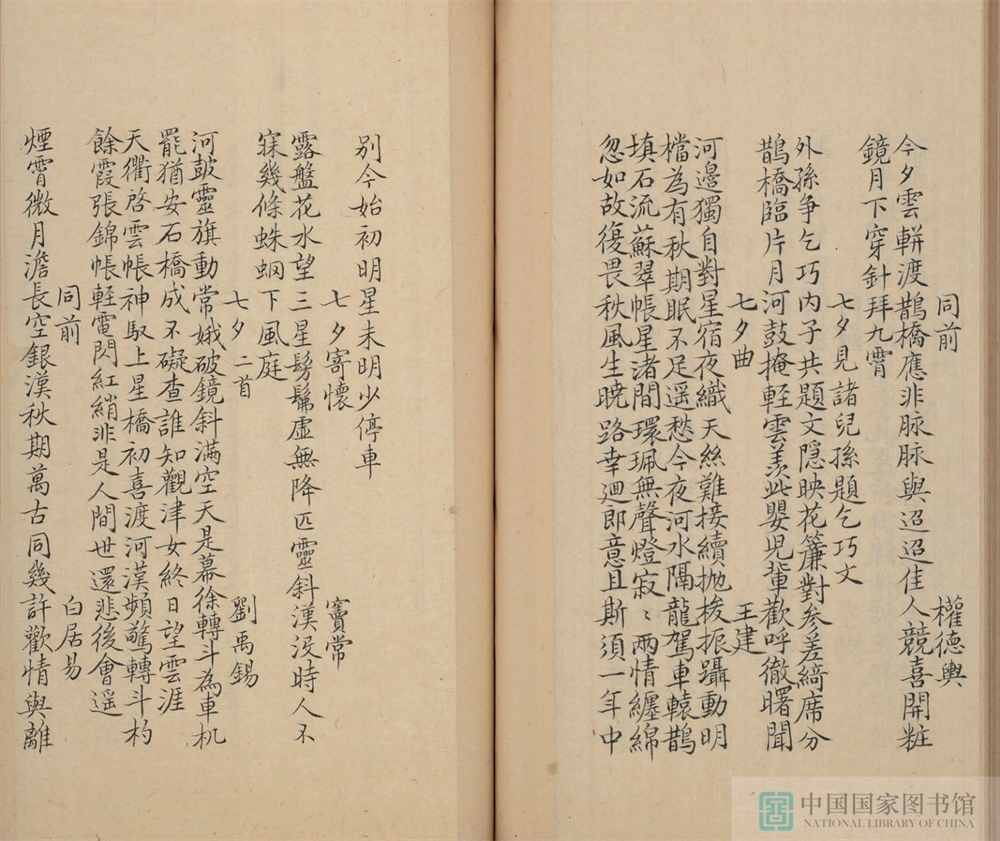 同前 權德輿
今夕雲軿渡鵲橋應非脉脉與迢迢佳人競喜開粧
鏡月下穿針拜九霄
七夕見諸兒孫題乞巧文
外孫争乞巧內子共題文隱映花簾對參差綺席分
鵲橋臨片月河鼓掩輕雲羨此嬰兒輩歡呼徹曙聞
七夕曲 王建
河邊獨自對星宿夜織天絲難接續抛梭振躡動明
檔為有秋期眠不足遥愁今夜河水隔龍駕車轅鵲
填石流蘇翠帳星渚間環珮無聲燈寂〻兩情纏綿
忽如故復畏秋風生曉路幸迴郎意且斯須一年中
别今始初明星未明少停車
七夕寄懷 竇常
露盤花水望三星髣髴虛無降匹靈斜漢没時人不
寐幾條蛛蛧下風庭
七夕二首 劉禹錫
河鼓靈旗動常娥破鏡斜滿空天是幕徐轉斗為車机
罷猶安石橋成不礙查誰知觀津女終日望雲涯
天衢啓雲帳神馭上星橋初喜渡河漢頻驚轉斗杓
餘霞張錦帳輕電閃紅綃非是人間世還悲後會遥
同前 白居易
煙霄微月澹長空銀漢秋期萬古同幾許歡情與離
中国国家图书馆
NATIONAL LIBRARY OF CHINA